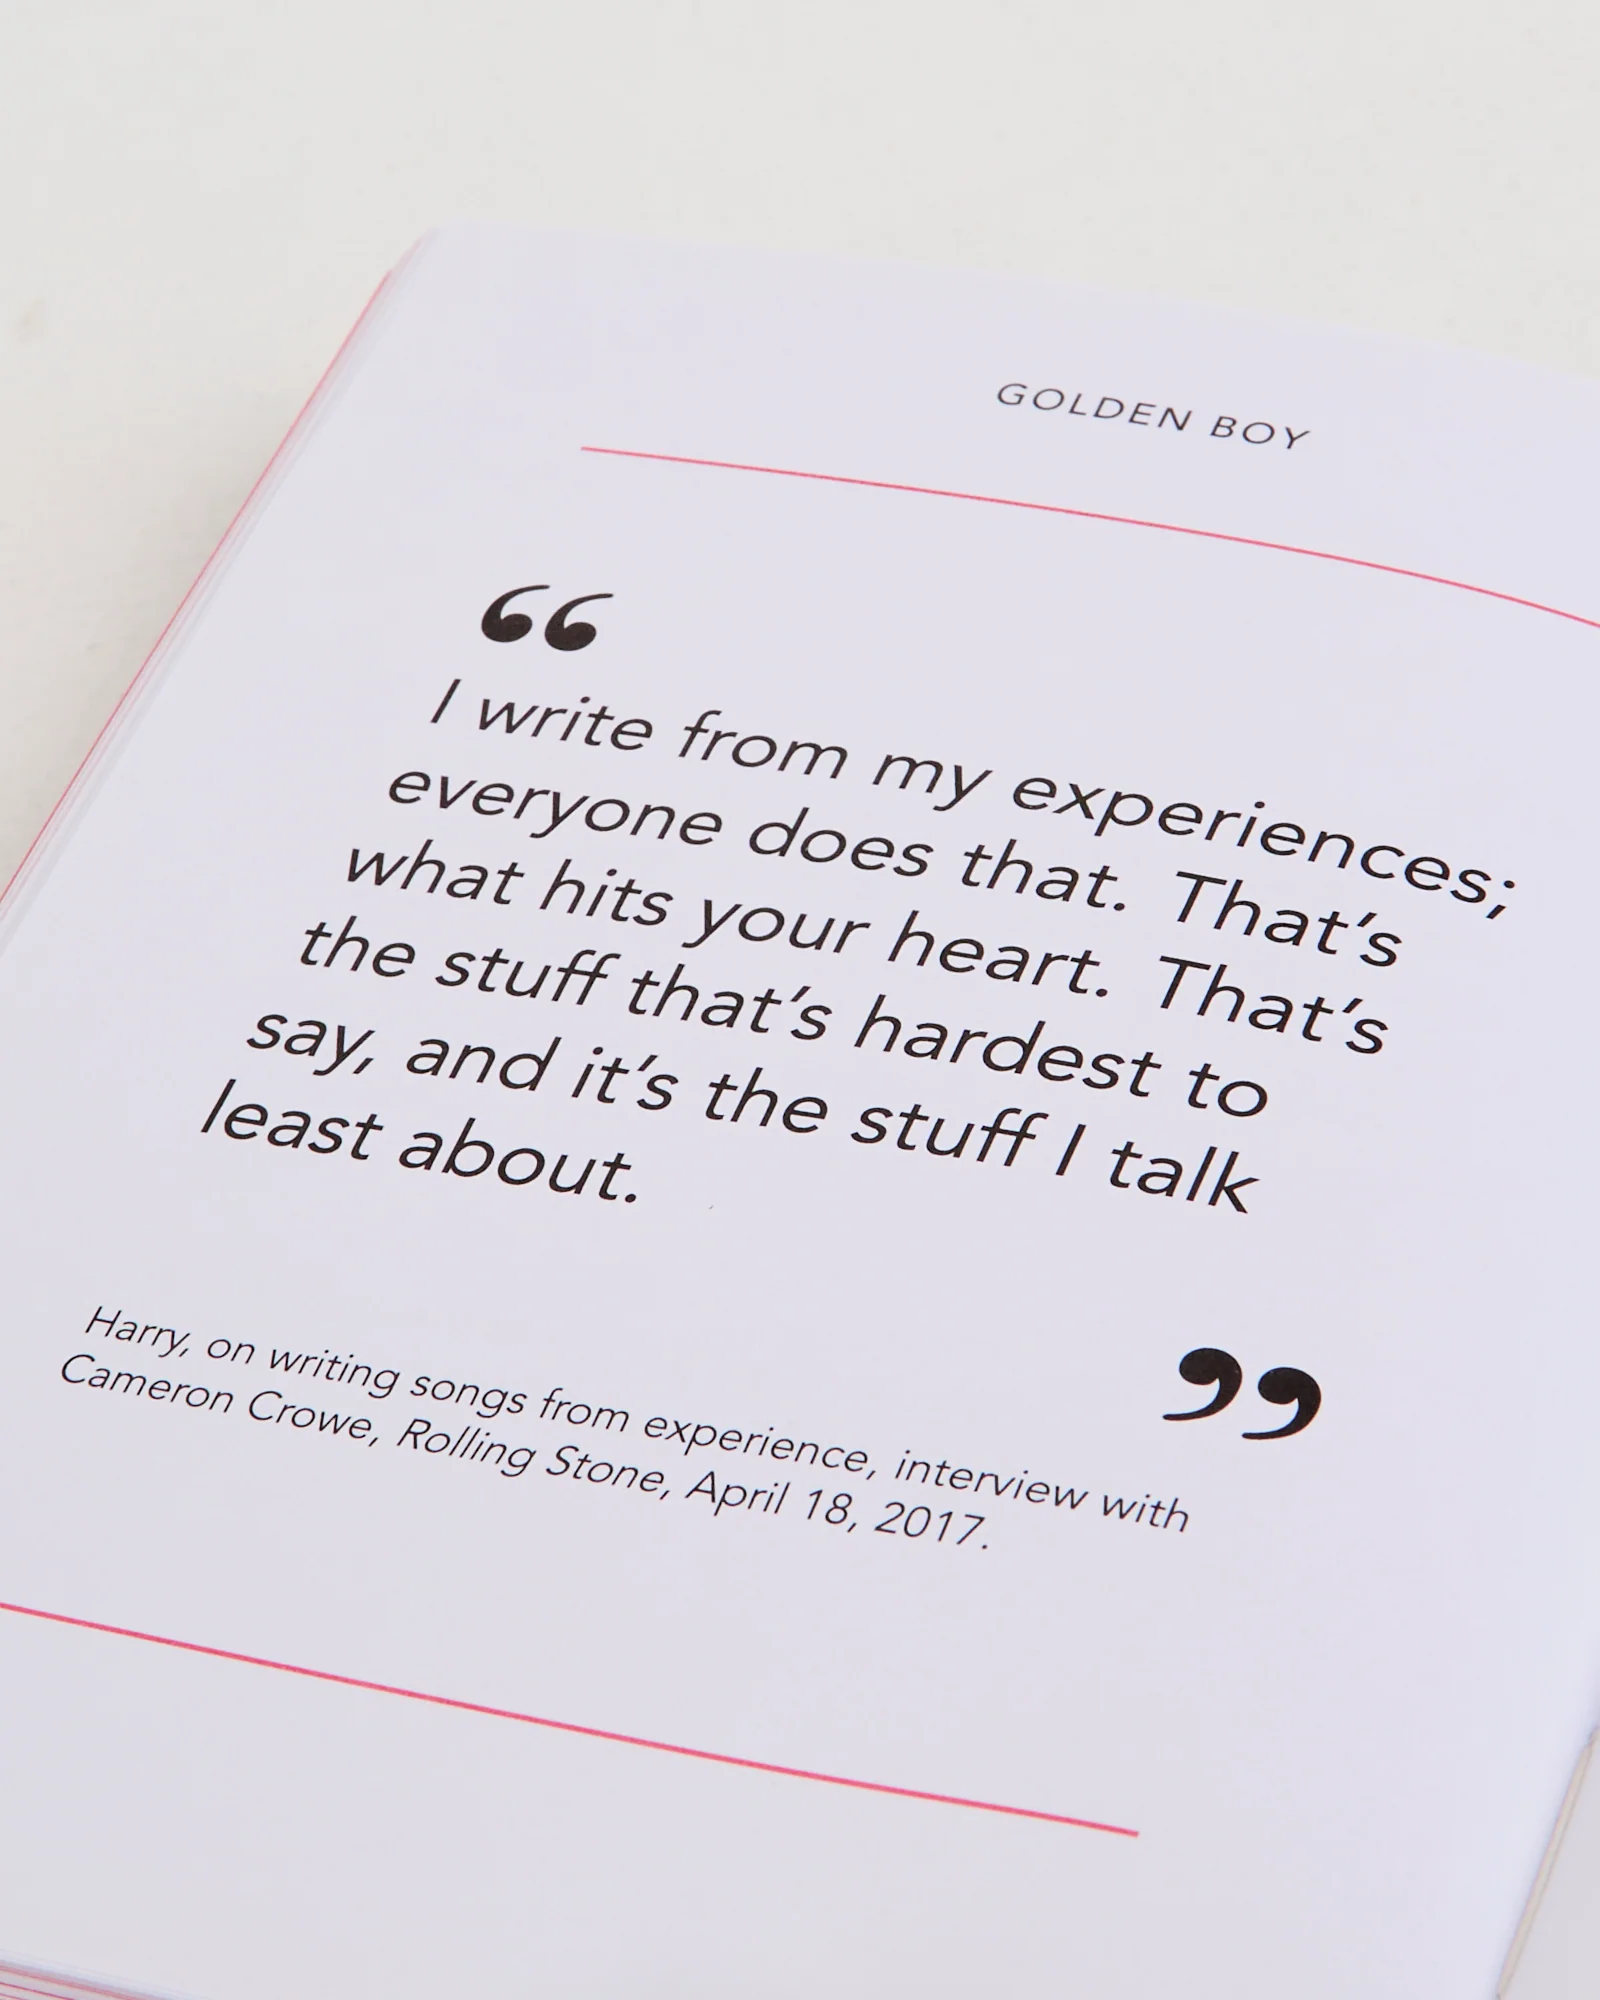 GOLDEN BOY
“
I write from my experiences;
everyone does that. That’s
what hits your heart. That’s
the stuff that’s hardest to
say, and it’s the stuff I talk
least about.
”
Harry, on writing songs from experience, interview with
Cameron Crowe, Rolling Stone, April 18, 2017.